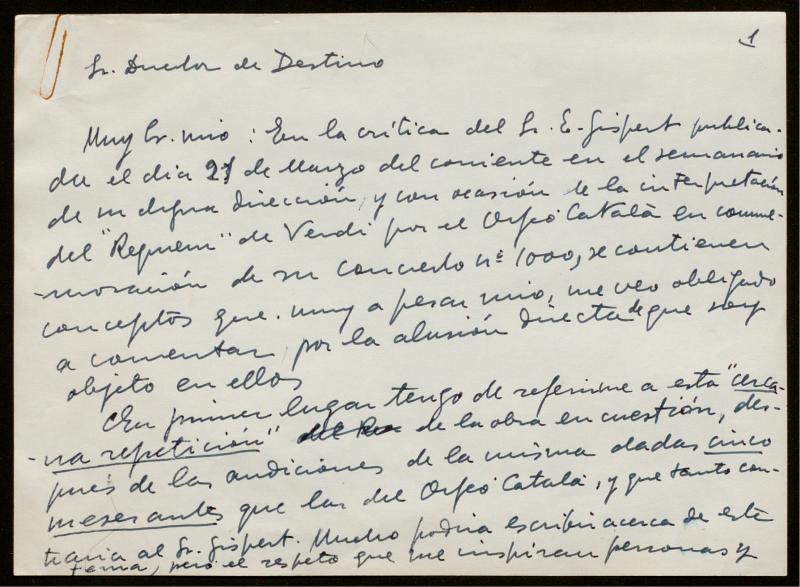 1
Sr. Director de Destino
Muy Sr. mio: En la crítica del Sr. E. Gispert publica-
da el dia 27 de Marzo del corriente en el semanario
de su digna dirección, y con ocasión de la interpretación
del "Requiem" de Verdi por el Orfeó Català en conme-
-moración de su concierto nº 1000, se contienen
conceptos que, muy a pesar mio, me veo obligado
a comentar por la alusión directa de que soy
objeto en ellos
En primer lugar tengo de referirme a esta "cerca-
-na repetición" de la obra en cuestión, des-
pués de las audiciones de la misma dadas cinco
meses antes que las del Orfeó Català, y que tanto con-
traria al Sr. Gispert. Mucho podria escribir acerca de este
tema, pero el respeto que me inspiran personas y